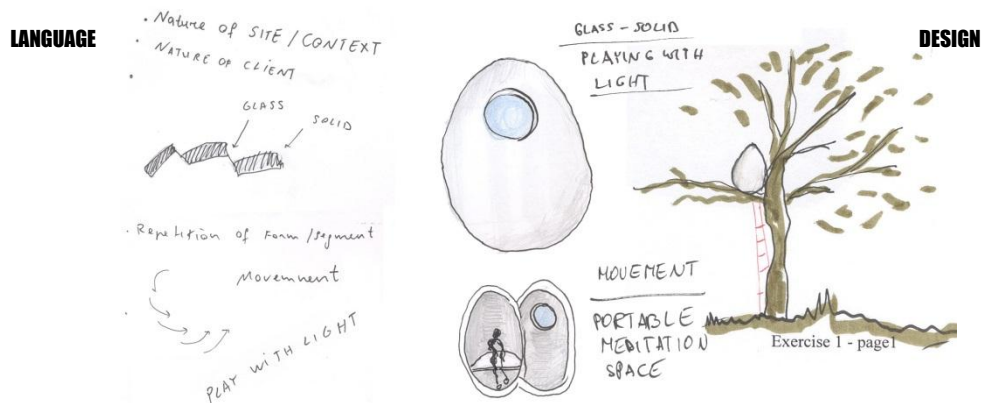 LANGUAGE
• Nature of SITE/CONTEXT
• NATURE OF CLIENT
•
GLASS
SOLID
• Repetition of Form/Segment
Movemnent
•
PLAY WITH LIGHT
GLASS - SOLID
PLAYING WITH
LIGHT
DESIGN
MOVEMENT
PORTABLE
MEDITATION
SPACE
Exercise 1 - page1